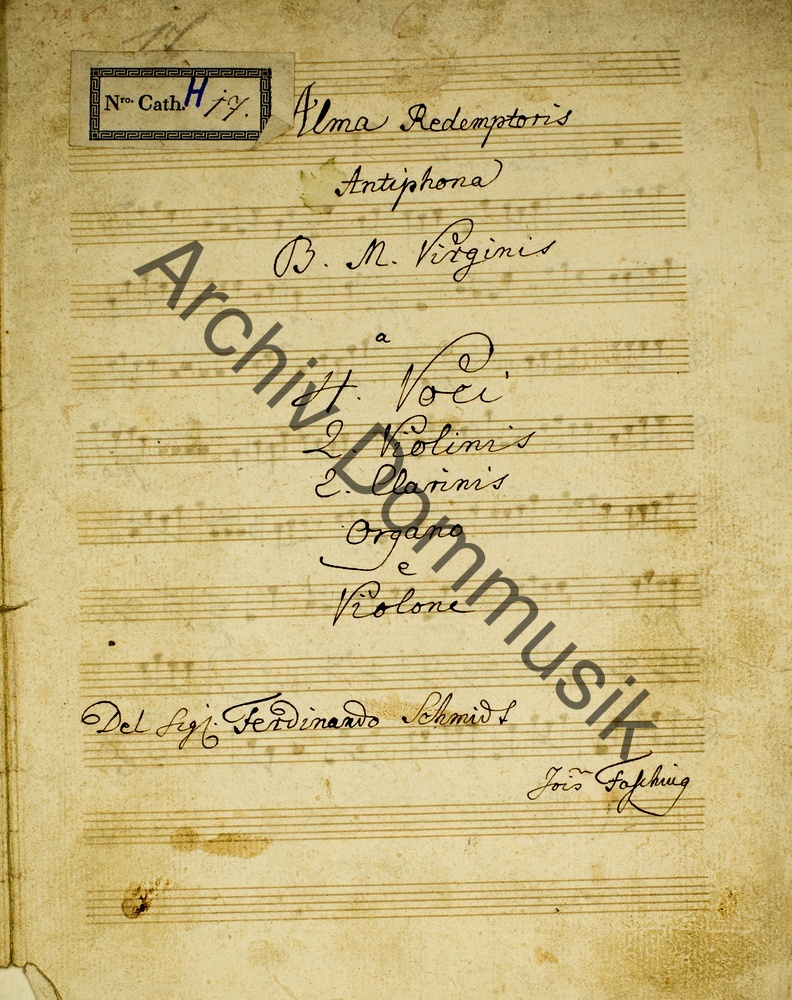 17
Nro. Cath. H 17.
Alma Redemptoris
Antiphona
B. M. Virginis
a
4. Voci
2. Violinis
2. Clarinis
Organo
e
Violone
Del Sigl. Ferdinando Schmidt
Jois Fasching
Archiv Dommusik